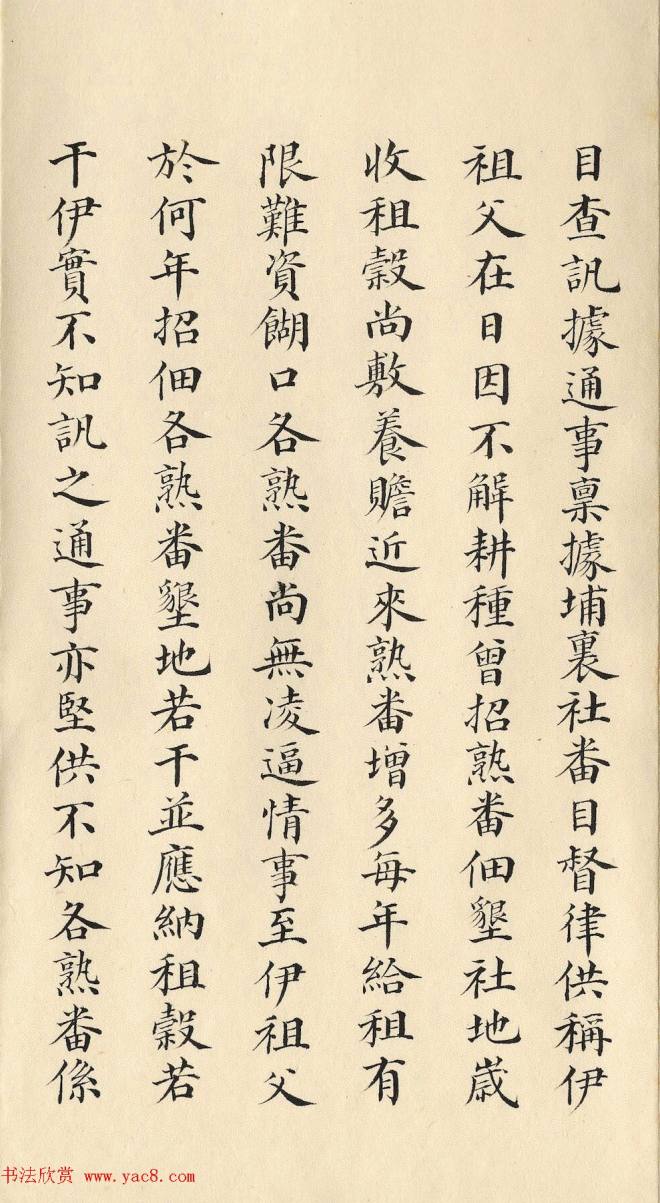 目查訊據通事稟據埔裏社番目督律供稱伊
祖父在日因不解耕種曾招熟番佃墾社地歲
收租穀尚敷養贍近來熟番增多每年給租有
限難資餬口各熟番尚無凌逼情事至伊祖父
於何年招佃各熟番墾地若干並應納租穀若
干伊實不知訊之通事亦堅供不知各熟番係
书法欣赏 www.yac8.com